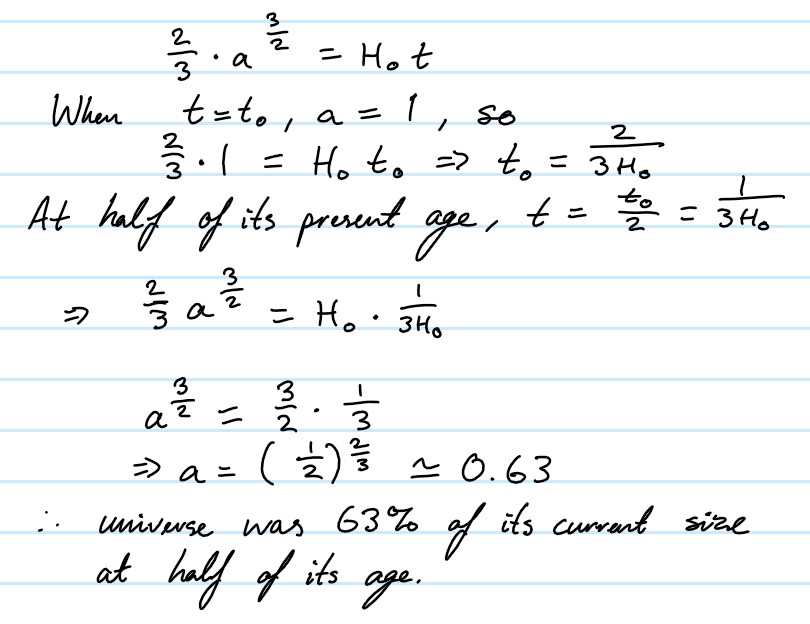 2/3 · a^(3/2) = H₀ t
When t = t₀, a = 1, so
2/3 · 1 = H₀ t₀ ⇒ t₀ = 2/(3H₀)
At half of its present age, t = t₀/2 = 1/(3H₀)
⇒ 2/3 a^(3/2) = H₀ · 1/(3H₀)
a^(3/2) = 3/2 · 1/3
⇒ a = (1/2)^(2/3) ≃ 0.63
∴ universe was 63% of its current size
at half of its age.